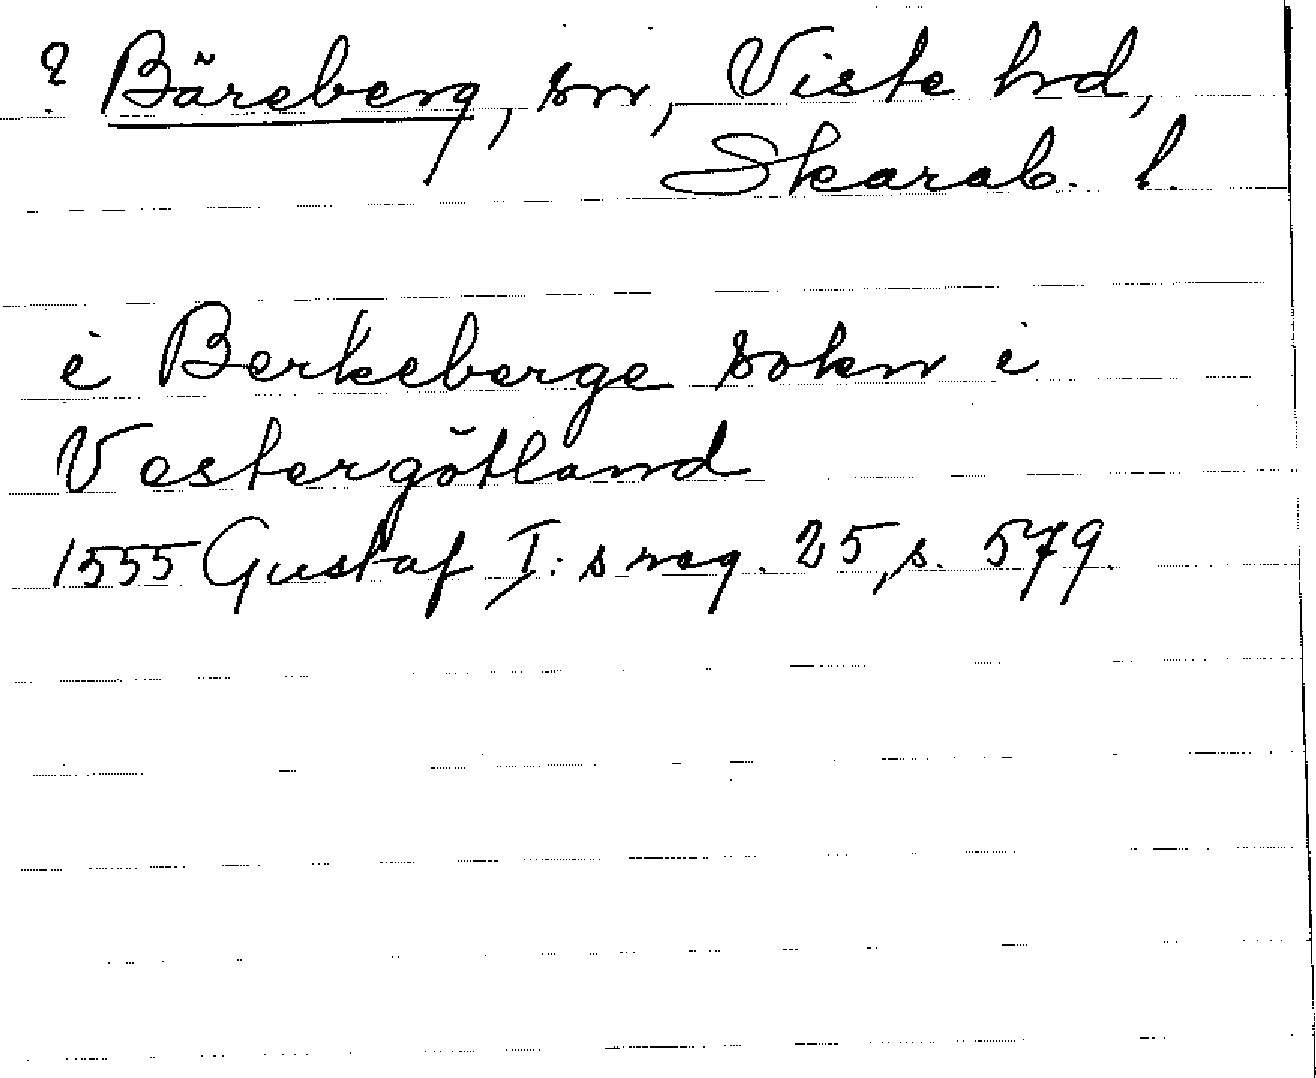 ? Bäreberg, sn, Viste hd,
Skarab. l.
i Berkeberge sokn i
Vestergötland
1555 Gustaf I:s reg. 25, s. 579.